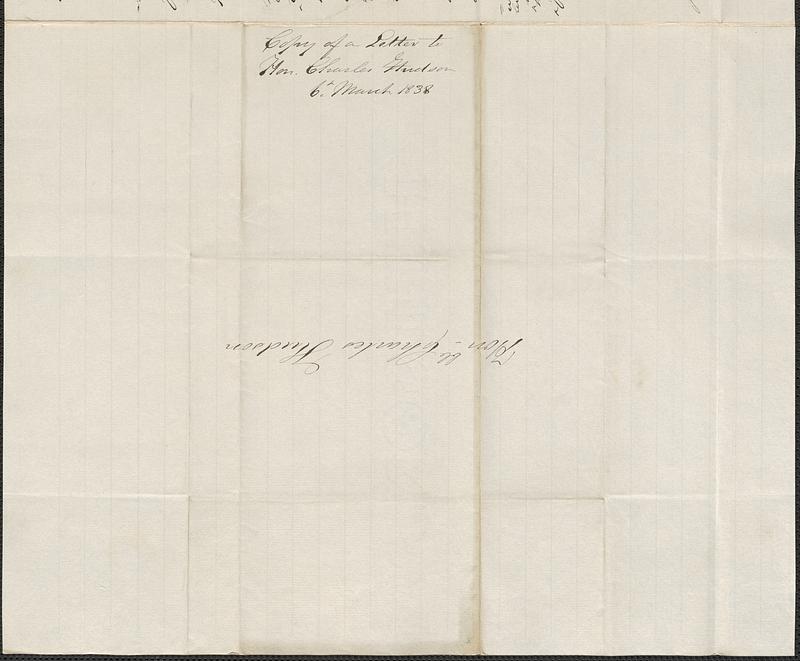 Copy of a Letter to
Hon. Charles Hudson
6th March 1838
Honble Charles Hudson